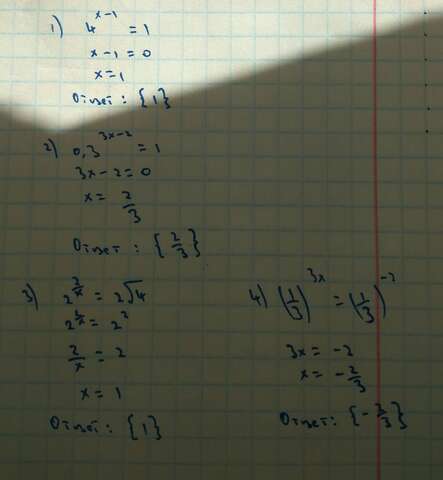 1) 4^{x-1} = 1
x-1 = 0
x=1
Ответ: {1}
2) 0,3^{3x-2} = 1
3x-2=0
x= 2/3
Ответ: {2/3}
3) 2^{2/x} = 2√4
2^{2/x} = 2^2
2/x = 2
x = 1
Ответ: {1}
4) (1/3)^{3x} = (1/3)^{-2}
3x = -2
x = -2/3
Ответ: {-2/3}